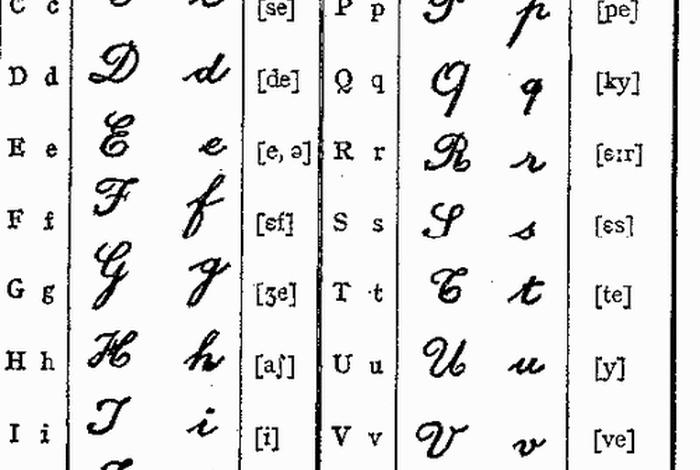 C c C c [se] P p P p [pe]
D d D d [de] Q q Q q [ky]
E e E e [e, ə] R r R r [ɛɪr]
F f F f [ɛf] S s S s [ɛs]
G g G g [ʒe] T t T t [te]
H h H h [aʃ] U u U u [y]
I i I i [i] V v V v [ve]